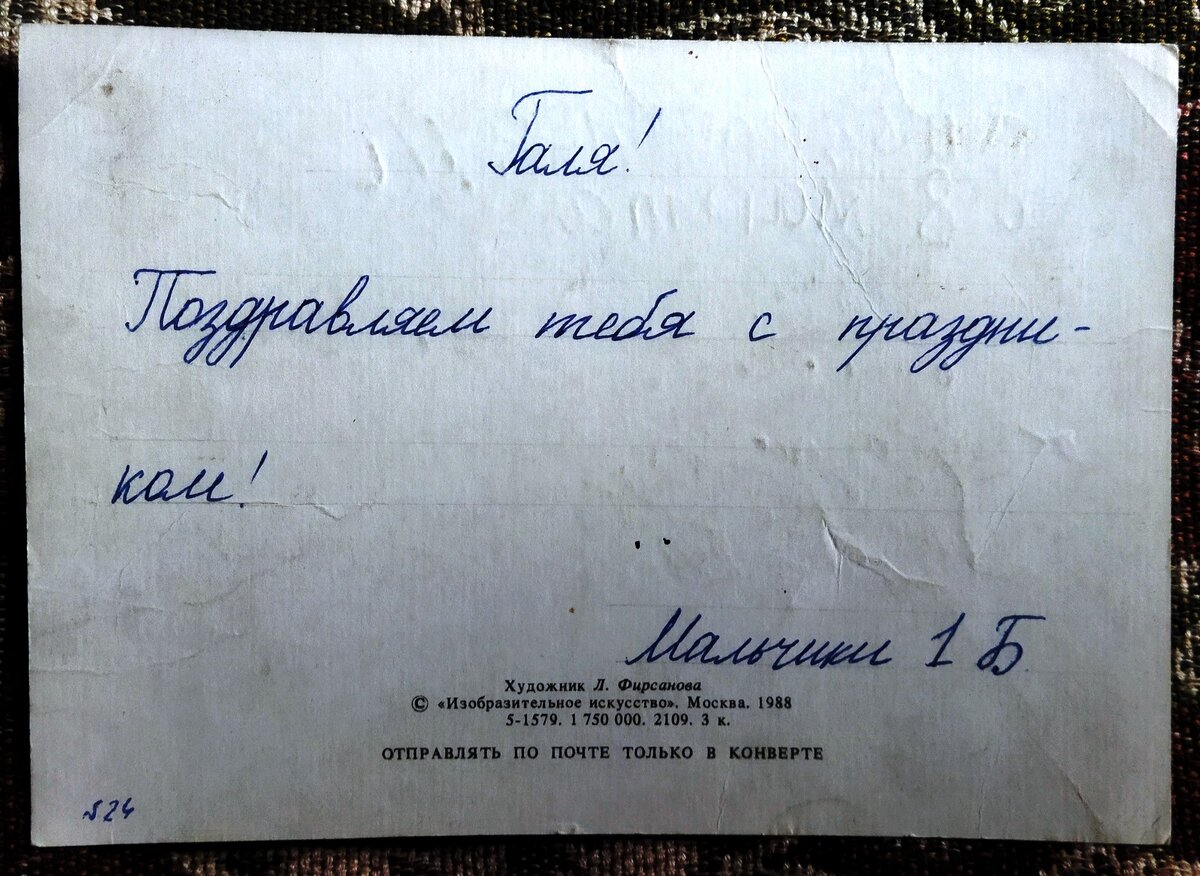 Галя!
Поздравляем тебя с праздни-
ком!
Мальчики 1 Б
Художник Л. Фирсанова
© «Изобразительное искусство». Москва. 1988
5-1579. 1 750 000. 2109. 3 к.
ОТПРАВЛЯТЬ ПО ПОЧТЕ ТОЛЬКО В КОНВЕРТЕ